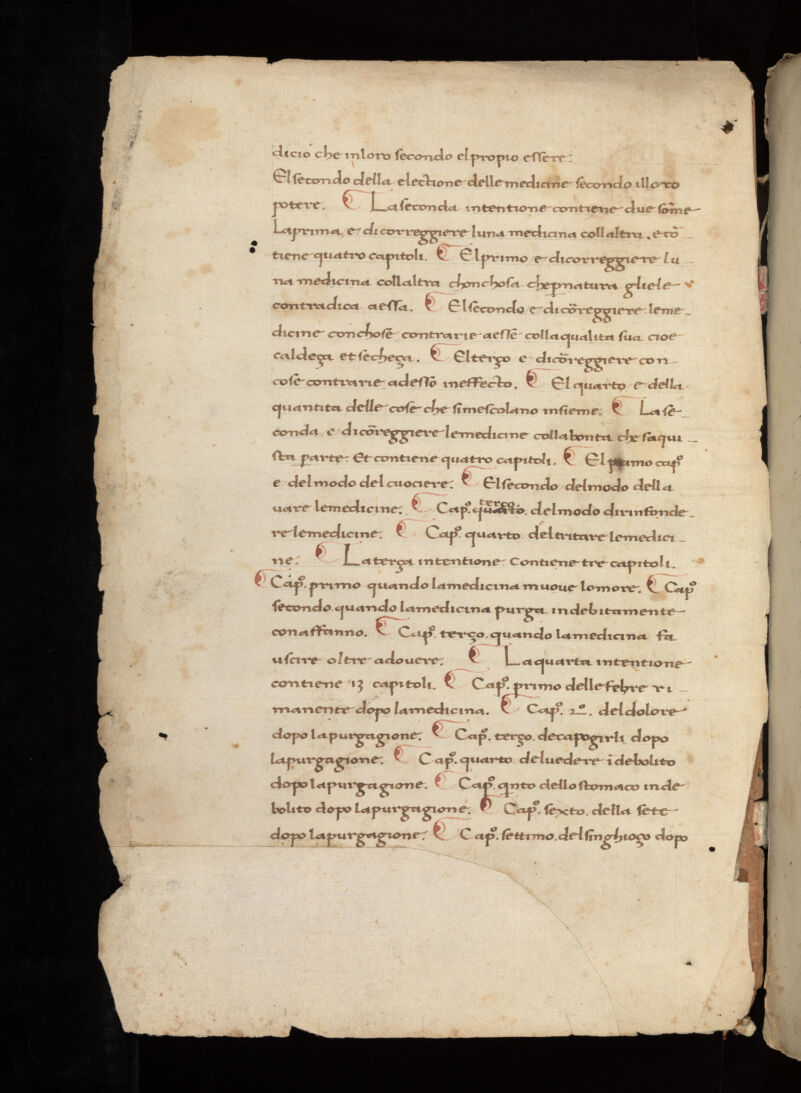 dicio che inloro secondo elpropio essere:
Elsecondo della electione delle medicine secondo illoro
potere. Laseconda intentione contiene due som̃e
Laprima e di correggiere luna medicina collaltra. e cō
tiene quatro capitoli. Elprimo e dicorreggiere lu
na medicina collaltra chonchosa chep̱natura gliele
contradica aessa. Elsecondo e dicōreggiere leme
dicine conchose contrarie aesse collaqualita sua cioe
caldeça et secheça. Elterço e dicōreggiere con
cose contrarie adesso ineffecto. El quarto e della
quantita delle cose che simescolano insieme. Lase
conda e dicōreggiere lemedicine collabonta che saqui
sta parte. Et contiene quatro capitoli. El primo cap̊
e delmodo delcuociere. Elsecondo delmodo della
uare lemedicine. Cap̊. terço quarto. delmodo dirinfonde
re lemedicine. Cap̊. quarto. deltritare lemedici
ne. Laterça intentione contiene tre capitoli.
Cap̊. primo quando lamedicina muoue lomore. Cap̊
secondo. quando lamedicina purga indebitamente
conaffanno. Cap̊. terço. quando lamedicina fa
uscire oltre adouere. Laquarta intentione
contiene 13 capitoli. Cap̊. primo dellefebre ri
manente dopo lamedicina. Cap̊. 2º. deldolore
dopo lapurgagione. Cap̊. terço. decapogirli dopo
lapurgagione. Cap̊. quarto deluedere ĩdebolito
dopo lapurgagione. Cap̊. qnto dello stomaco inde
bolito dopo lapurgagione. Cap̊. sexto. della sete
dopo lapurgagione. Cap̊. settimo. delsinghioço dopo